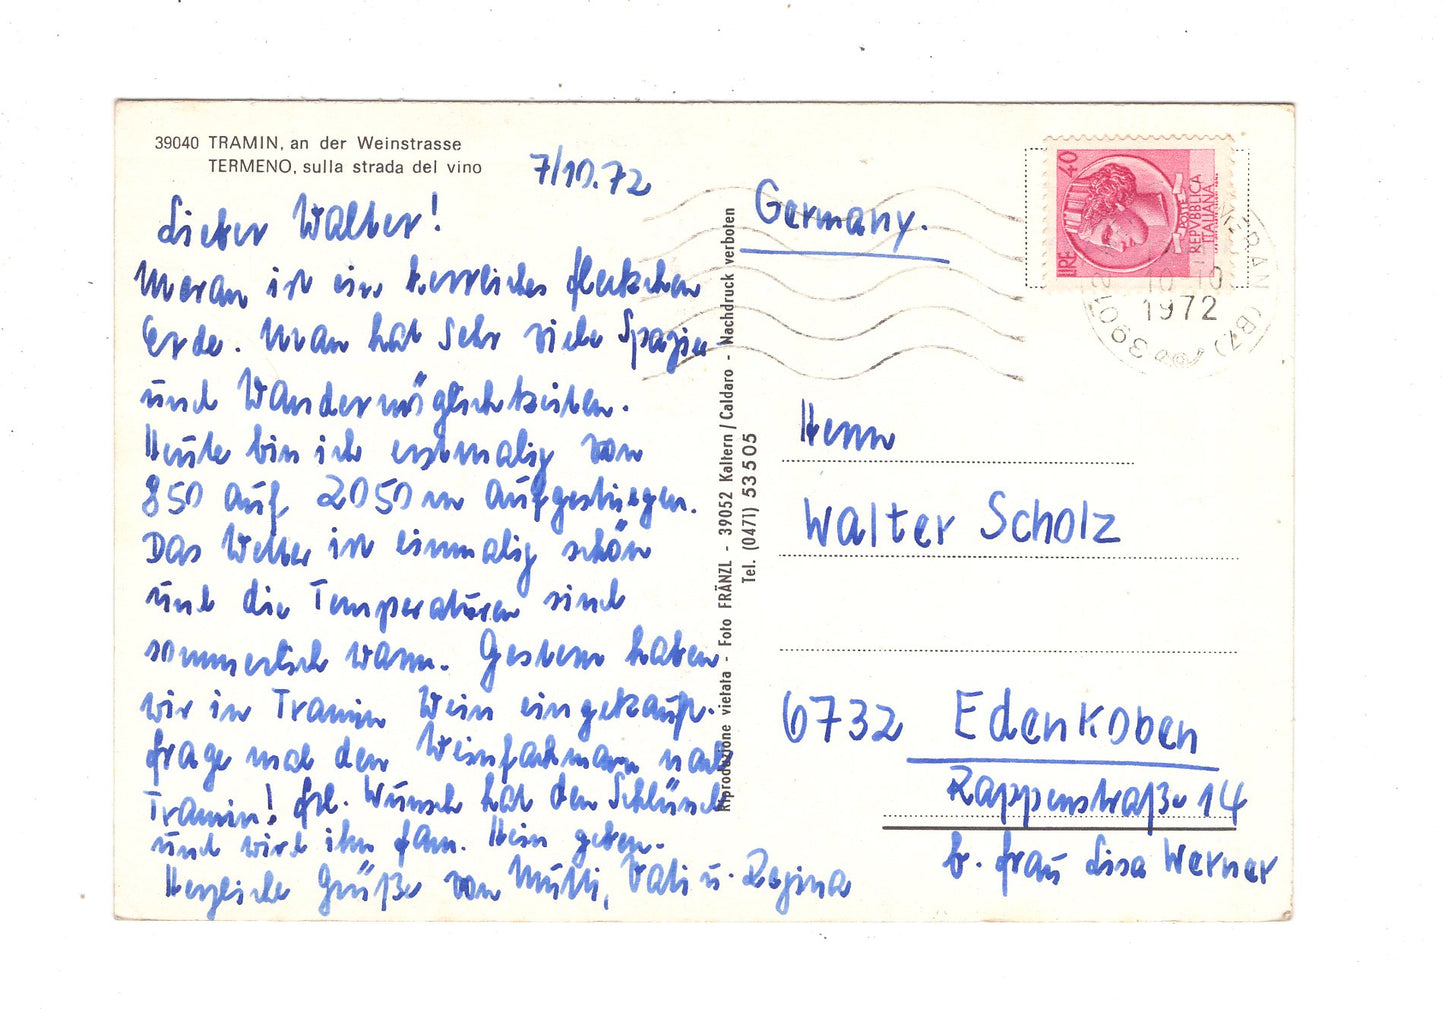 39040 TRAMIN, an der Weinstrasse
TERMENO, sulla strada del vino
7/10.72
Lieber Walter!
Meran ist ein herrliches fleckchen
Erde. Man hat sehr viele Spazier-
und Wandermöglichkeiten.
Heute bin ich erstmalig von
850 auf 2050 m aufgestiegen.
Das Wetter ist einmalig schön
und die Temperaturen sind
sommerlich warm. Gestern haben
wir in Tramin Wein eingekauft.
frage mal den Weinfachmann nach
Tramin! frl. Wunsch hat den Schlüssel
und wird ihn fam. Hein geben.
Herzliche Grüße von Mutti, Vati u. Regina
Riproduzione vietata - Foto FRÄNZL - 39052 Kaltern/Caldaro - Nachdruck verboten
Tel. (0471) 53505
Germany.
LIRE 40
POSTE
REPVBBLICA
ITALIANA
MERAN (BZ)
39012
10 10
1972
Herrn
Walter Scholz
6732 Edenkoben
Rappenstraße 14
b. frau Lisa Werner